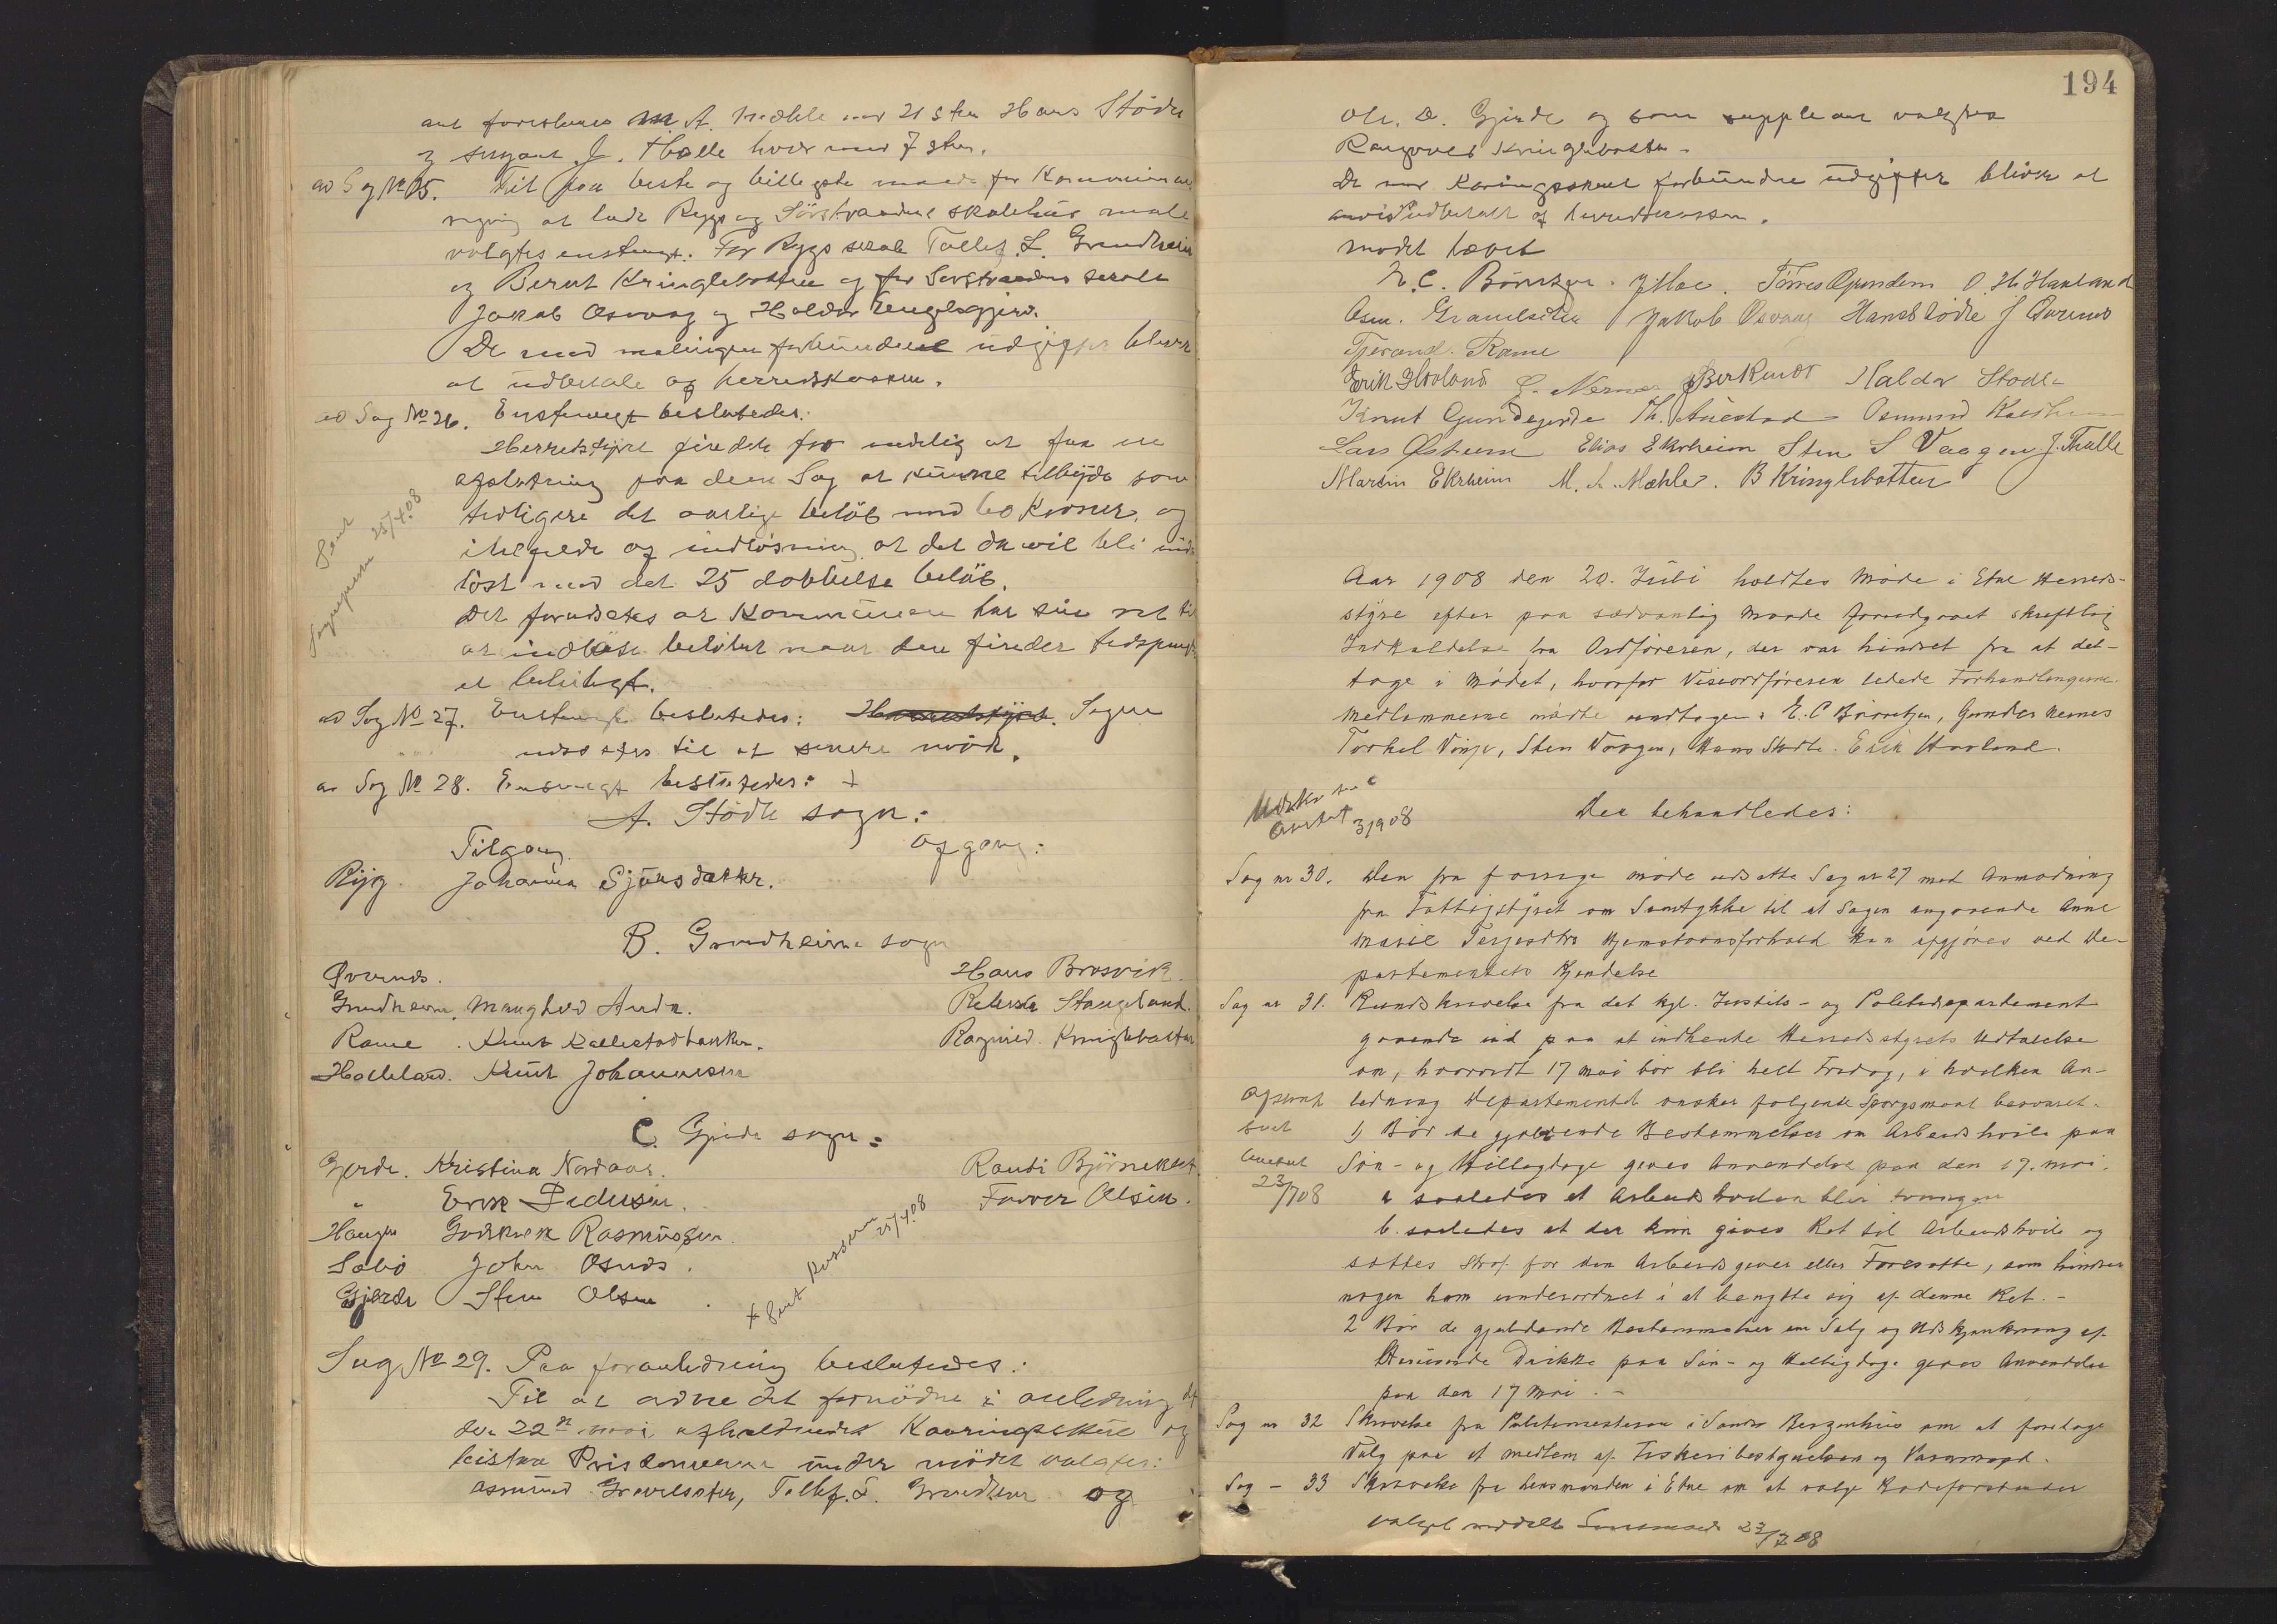 ant foresloues M. A. Mæhle med 21 stm Hans Stödle
og sergant J. Tholle hver med 7 stm.
ad Sag No 25. Til paa beste og billigste maade for Kommunens
regning at lade Rygs og Sörstrandens skolehus male
valgtes enstemt. For Rygs skole Tollef L. Grindheim
og Berut Kringlebotten og for Sörstrandens skole
Jakob Osvaag og Haldor Englegjerd.
De med malingen forbundene udgifter blever
at udbetale af herredskassen.
ad Sag No 26. Enstemigt besluttedes:
Herredstyret finder for endelig at faa en
afslutning paa denne Sag at kunne tilbyde som
tidligere det aarlige belöb med 60 Kroner og
itilfelde af indlösning at det da vil bli ind
löst med det 25 dobbelte belöb.
Det forudsetes at Kommunen har sin ret til
at indlöse belöbet naar den finder tidspunktet
er beleiligt.
Sent
Sogneprest 25/4.08
ad Sag No 27. Enstemigt besluttedes: Herredstyret. Sagen
udsættes til et senere möde.
ad Sag No 28. Ensemigt besluttedes: +
A. Stödle sogn:
Tilgang afgang:
Ryg Johanna Sjursdatter.
B. Grindheims sogn
Övernes. Hans Brosvik.
Grindheim. Maughild Anda. Stangeland.
Rame. Knut Kallestadbakken. Ragnild Kringlebotten
Hovland. Knut Johannesen
C. Gjerde sogn:
Gjerde. Kristina Nordaas. Randi Björnekleit
" Erik Pedersen. Tarver Olsen.
Haugen Rasmussen
Sæbö John Osnes.
Gjerde Sten Olsen.
+ Sent Kassereren 25/4.08
Sag No 29. Paa foranledning besluttedes:
Til at ordne det fornödne i anledning af
den 22de mai afholdendes Kaaringsskue og
beistaa Prisdommerne under mödet valgtes:
Asmund Gravelseter, Tollef. L. Grindheim og
194
Ole. D. Gjerde og som suppleant valgtes
Rangvald Kringlebotten.
De med Karingsskuet forbundne udgifter bliver at
anvise udbetalt af herredskassen.
mödet hævet
E. C. Börretzen. J Moe. Törres Grindem O. H. Haaland
Asm. Gravelseter Jakob Osvaag Hans Stödle J Övernes
Tjerand. Rame
Erik Hovland G. Nernes Haldor Stødle
Knut Gundegjerde Th. Auestad Osmund
Lars Østrem Elias Ekrheim Sten S Vaagen J. Tholle
Martin Ekrheim M. A. Mæhle. B Kringlebotten
Aar 1908 den 20. Juli holdtes Møde i Etne Herreds-
styre efter paa sædvanlig Maade forudgaaet skriftlig
Indkaldelse fra Ordføreren, der var hindret fra at del-
tage i Mødet, hvorfor Viseordføreren ledede Forhandlingerne.
Medlemmerne mødte undtagen: E. C Börretzen, Gunder Nernes
Torkel Vinje, Sten Vaagen, Hans Stødle. Erik Hovland.
Der behandledes:
3/9 08
Sag nr 30. Den fra forrige møde udsatte Sag nr 27 med Anmodning
fra Fattigstyret om Samtykke til at Sagen angaaende Anne
Marie Terjesdtrs Hjemstavnsforhold kan afgjöres ved De-
partementets Kjendelse
Sag nr 31. Rundskrivelse fra det kgl. Justits- og Politidepartement
gaaende ud paa at indhente Herredsstyrets Udtalelse
om, hvorvidt 17 mai bör bli helt Fredag, i hvilken An-
ledning Departementet ønsker følgende Spørgsmaal besvaret:
1) Bör de gjældende Bestemmelser om Arbeidshvile paa
Søn- og Helligdage gives Anvendelse paa den 17. mai.
a saaledes at Arbeidshvilen blir tvungen
b. saaledes at der kun gives Ret til Arbeidshvile og
sættes Straf for den Arbeidsgiver eller Foresatte, som hindrer
nogen ham underordnet i at benytte sig af denne Ret. -
Afskrift
sendt
23/7 08
2 Bör de gjældende Bestemmelser om Salg og Udskjænkning af
berusende Drikke paa Søn- og Helligdage gives Anvendelse
paa den 17 mai. -
Sag nr 32 Skrivelse fra Politimesteren i Søndre Bergenhus om at foretage
Valg paa et medlem af Fiskeribestyrelsen og Varamand.
Sag - 33 Skrivelse fra Lensmanden i Etne om at vælge Rodeforstander
valget meddelt Lensmand 23/7 08